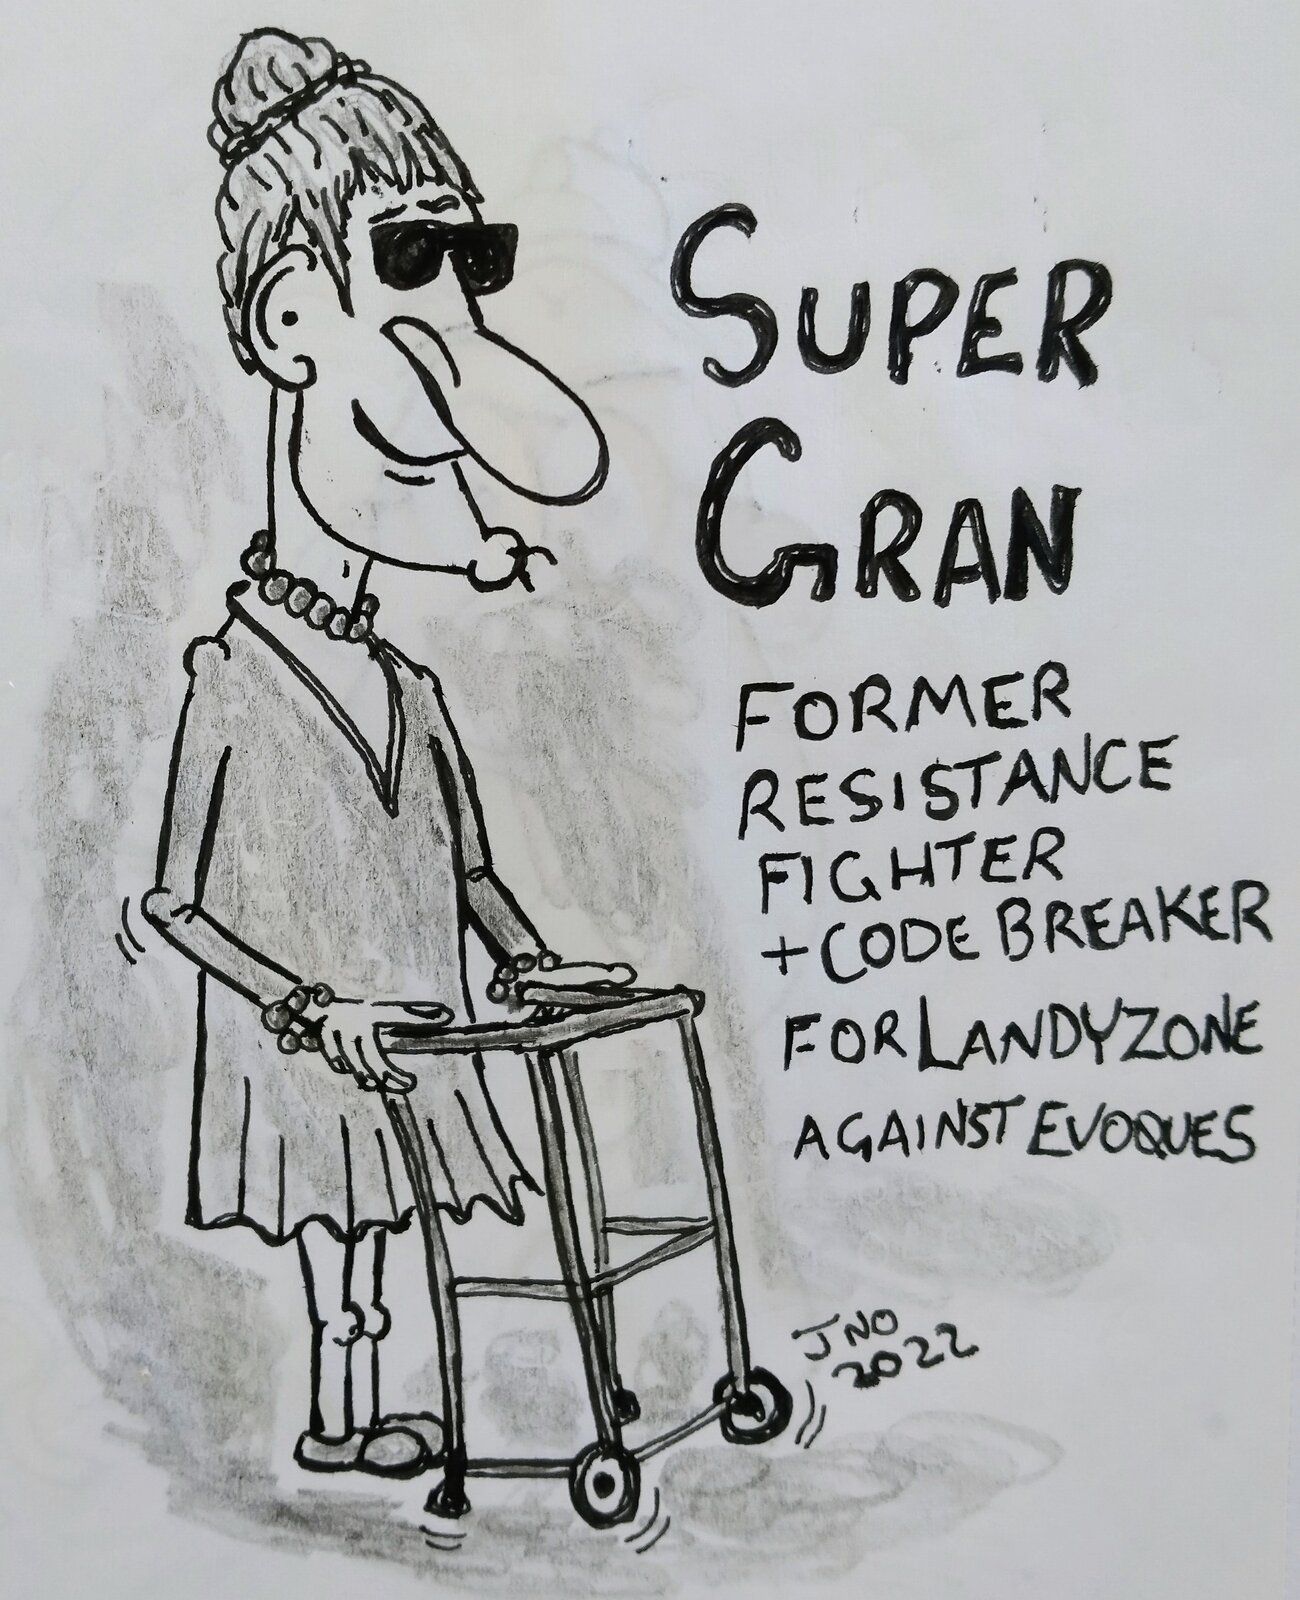 SUPER
GRAN
FORMER
RESISTANCE
FIGHTER
+ CODE BREAKER
FOR LANDYZONE
AGAINST EVOQUES
JNO
2022